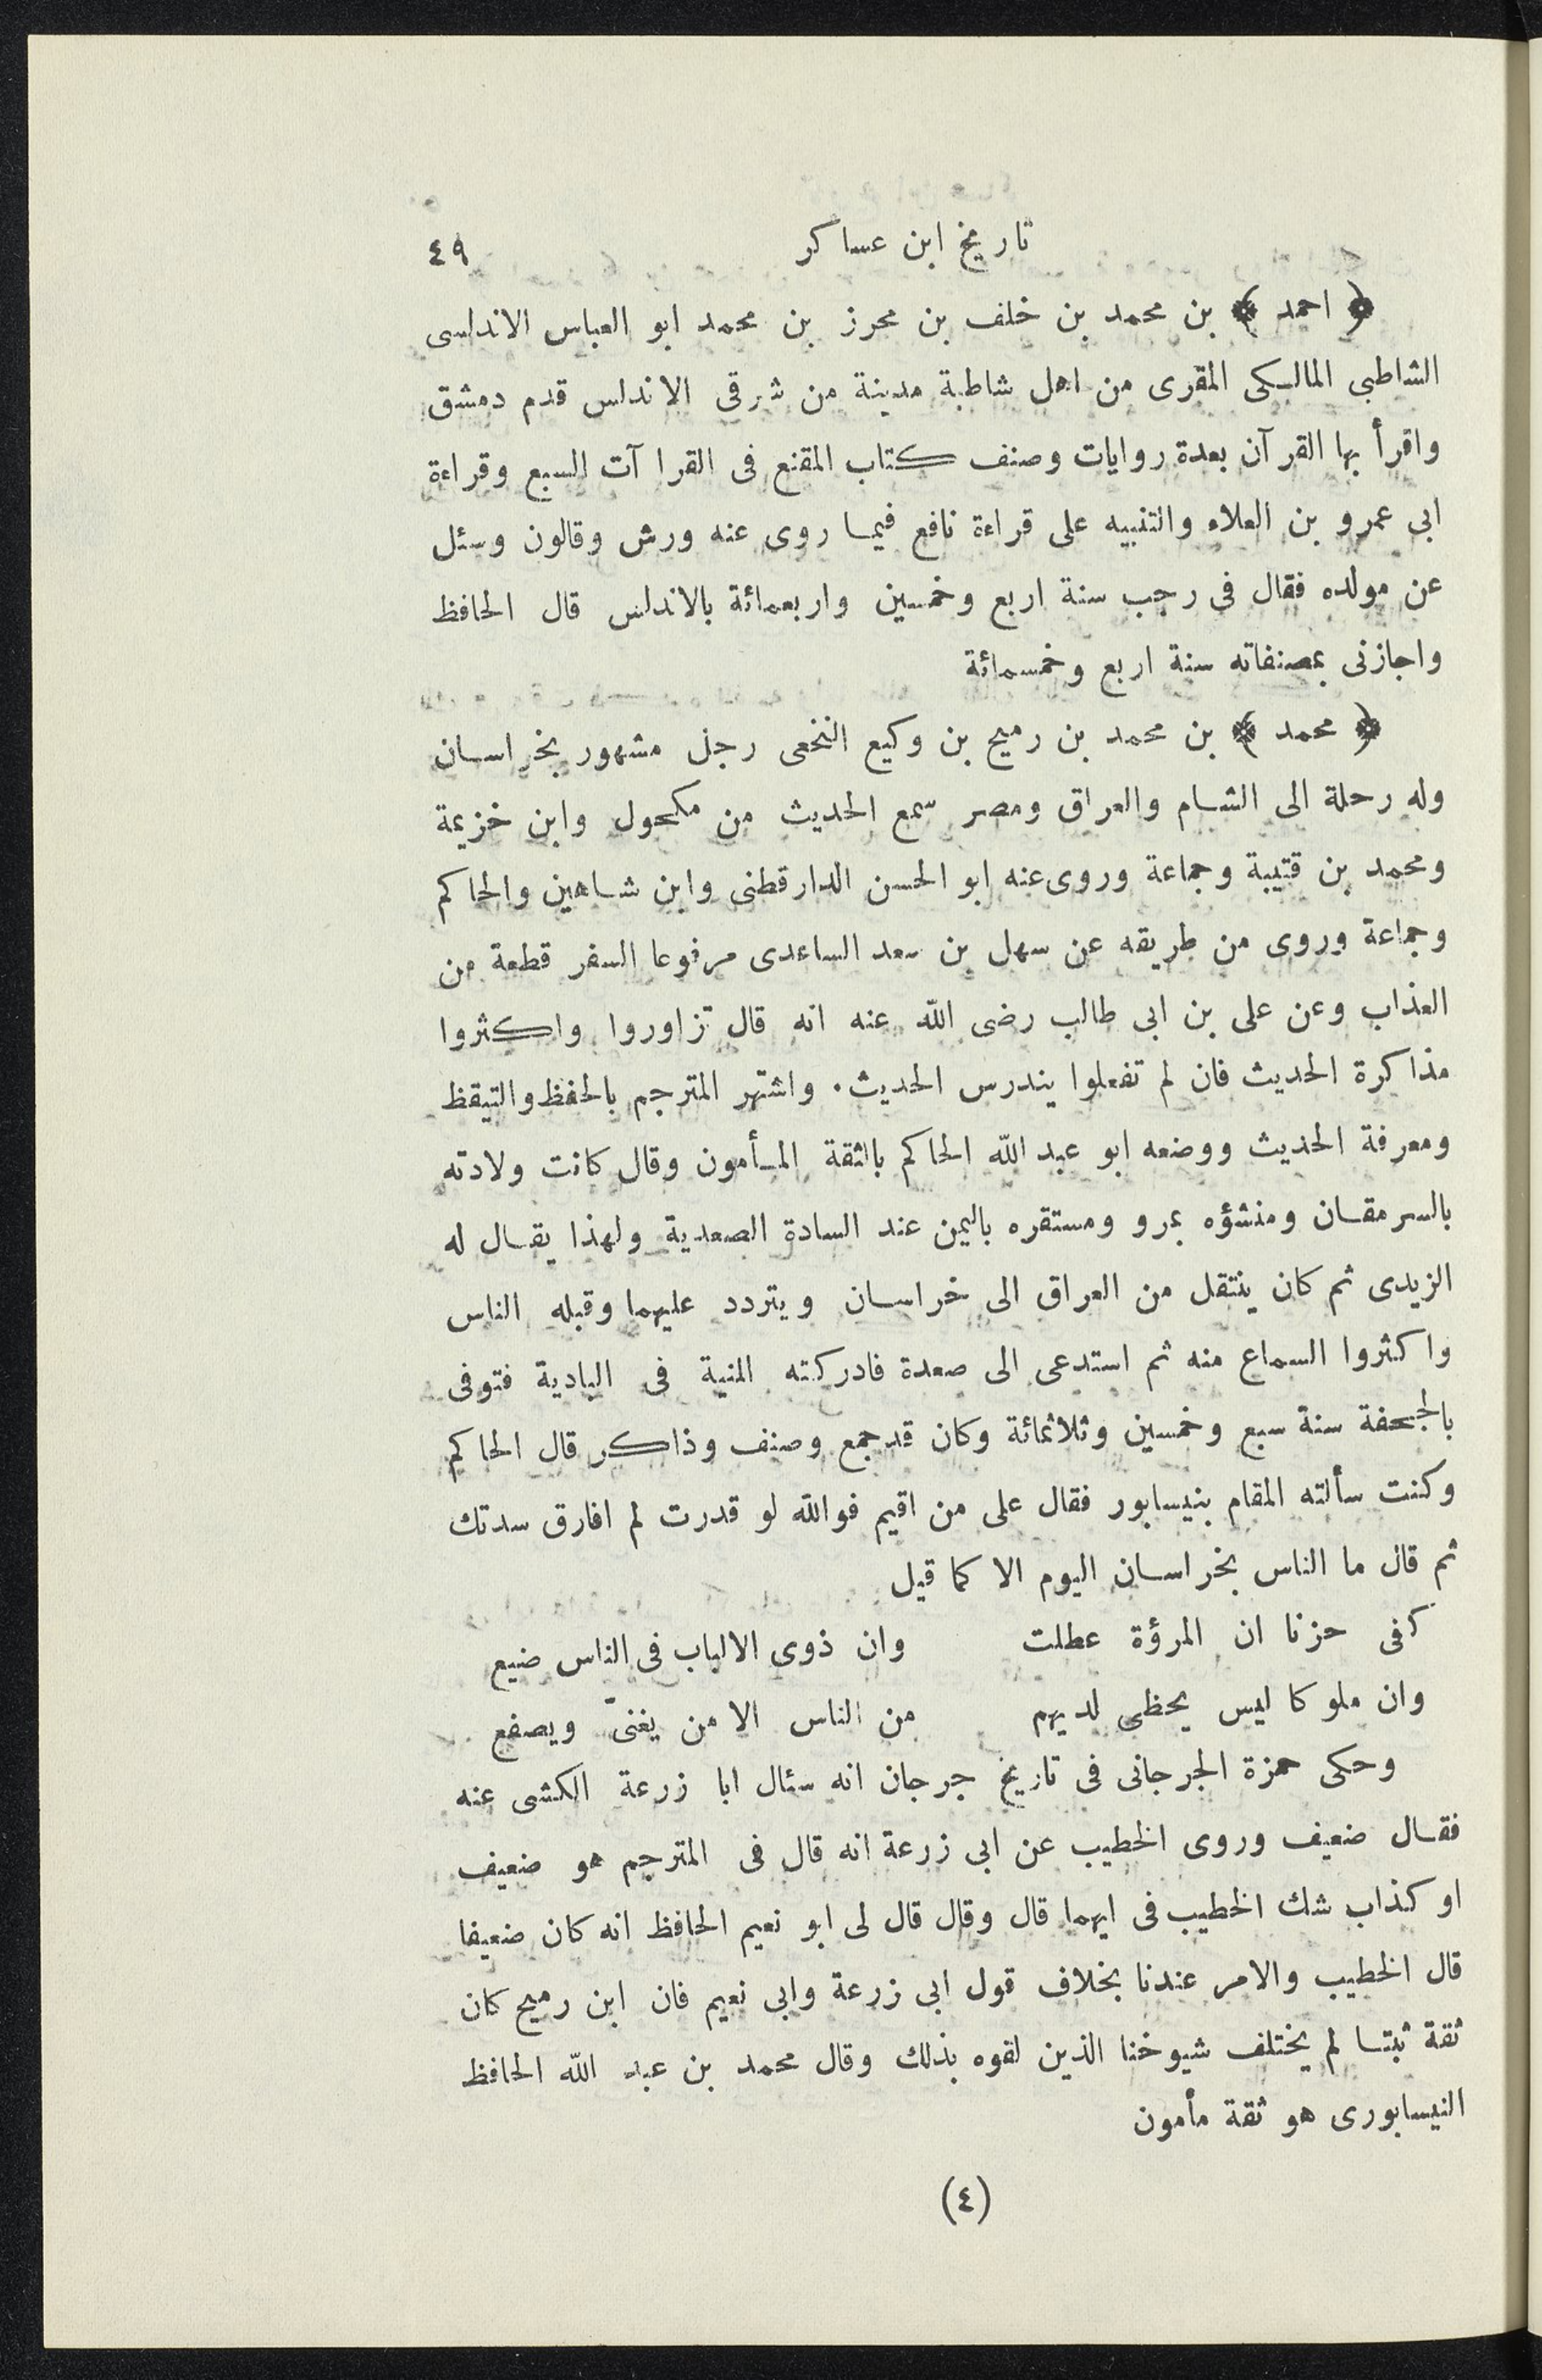 تاريخ ابن عساكر ٤٩
﴿ احمد ﴾ بن محمد بن خلف بن محرز بن محمد ابو العباس الاندلسى
الشاطبى المالكى المقرى من اهل شاطبة مدينة من شرقى الاندلس قدم دمشق
واقرأ بها القرآن بعدة روايات وصنف كتاب المقنع فى القراآت السبع وقراءة
ابى عمرو بن العلاء والتنبيه على قراءة نافع فيما روى عنه ورش وقالون وسئل
عن مولده فقال فى رجب سنة اربع وخمسين واربعمائة بالاندلس قال الحافظ
واجازنى بمصنفاته سنة اربع وخمسمائة
﴿ محمد ﴾ بن محمد بن رميح بن وكيع النخعى رجل مشهور بخراسان
وله رحلة الى الشام والعراق ومصر سمع الحديث من مكحول وابن خزيمة
ومحمد بن قتيبة وجماعة وروى عنه ابو الحسن الدارقطنى وابن شاهين والحاكم
وجماعة وروى من طريقه عن سهل بن سعد الساعدى مرفوعا السفر قطعة من
العذاب وعن على بن ابى طالب رضى الله عنه انه قال تزاوروا واكثروا
مذاكرة الحديث فان لم تفعلوا يندرس الحديث. واشتهر المترجم بالحفظ والتيقظ
ومعرفة الحديث ووضعه ابو عبد الله الحاكم بالثقة المأمون وقال كانت ولادته
بالسرمقان ومنشؤه بمرو ومستقره باليمن عند السادة الصعدية ولهذا يقال له
الزيدى ثم كان ينتقل من العراق الى خراسان ويتردد عليهما وقبله الناس
واكثروا السماع منه ثم استدعى الى صعدة فادركته المنية فى البادية فتوفى
بالجحفة سنة سبع وخمسين وثلاثمائة وكان قد جمع وصنف وذاكر قال الحاكم
وكنت سألته المقام بنيسابور فقال على من اقيم فوالله لو قدرت لم افارق سدتك
ثم قال ما الناس بخراسان اليوم الا كما قيل
كفى حزنا ان المرؤة عطلت وان ذوى الالباب فى الناس ضيع
وان ملوكا ليس يحظى لديهم من الناس الا من يغنىّ ويصفع
وحكى حمزة الجرجانى فى تاريخ جرجان انه سئال ابا زرعة الكشى عنه
فقال ضعيف وروى الخطيب عن ابى زرعة انه قال فى المترجم هو ضعيف
او كذاب شك الخطيب فى ايهما قال وقال قال لى ابو نعيم الحافظ انه كان ضعيفا
قال الخطيب والامر عندنا بخلاف قول ابى زرعة وابى نعيم فان ابن رميح كان
ثقة ثبتا لم يختلف شيوخنا الذين لقوه بذلك وقال محمد بن عبد الله الحافظ
النيسابورى هو ثقة مأمون
(٤)